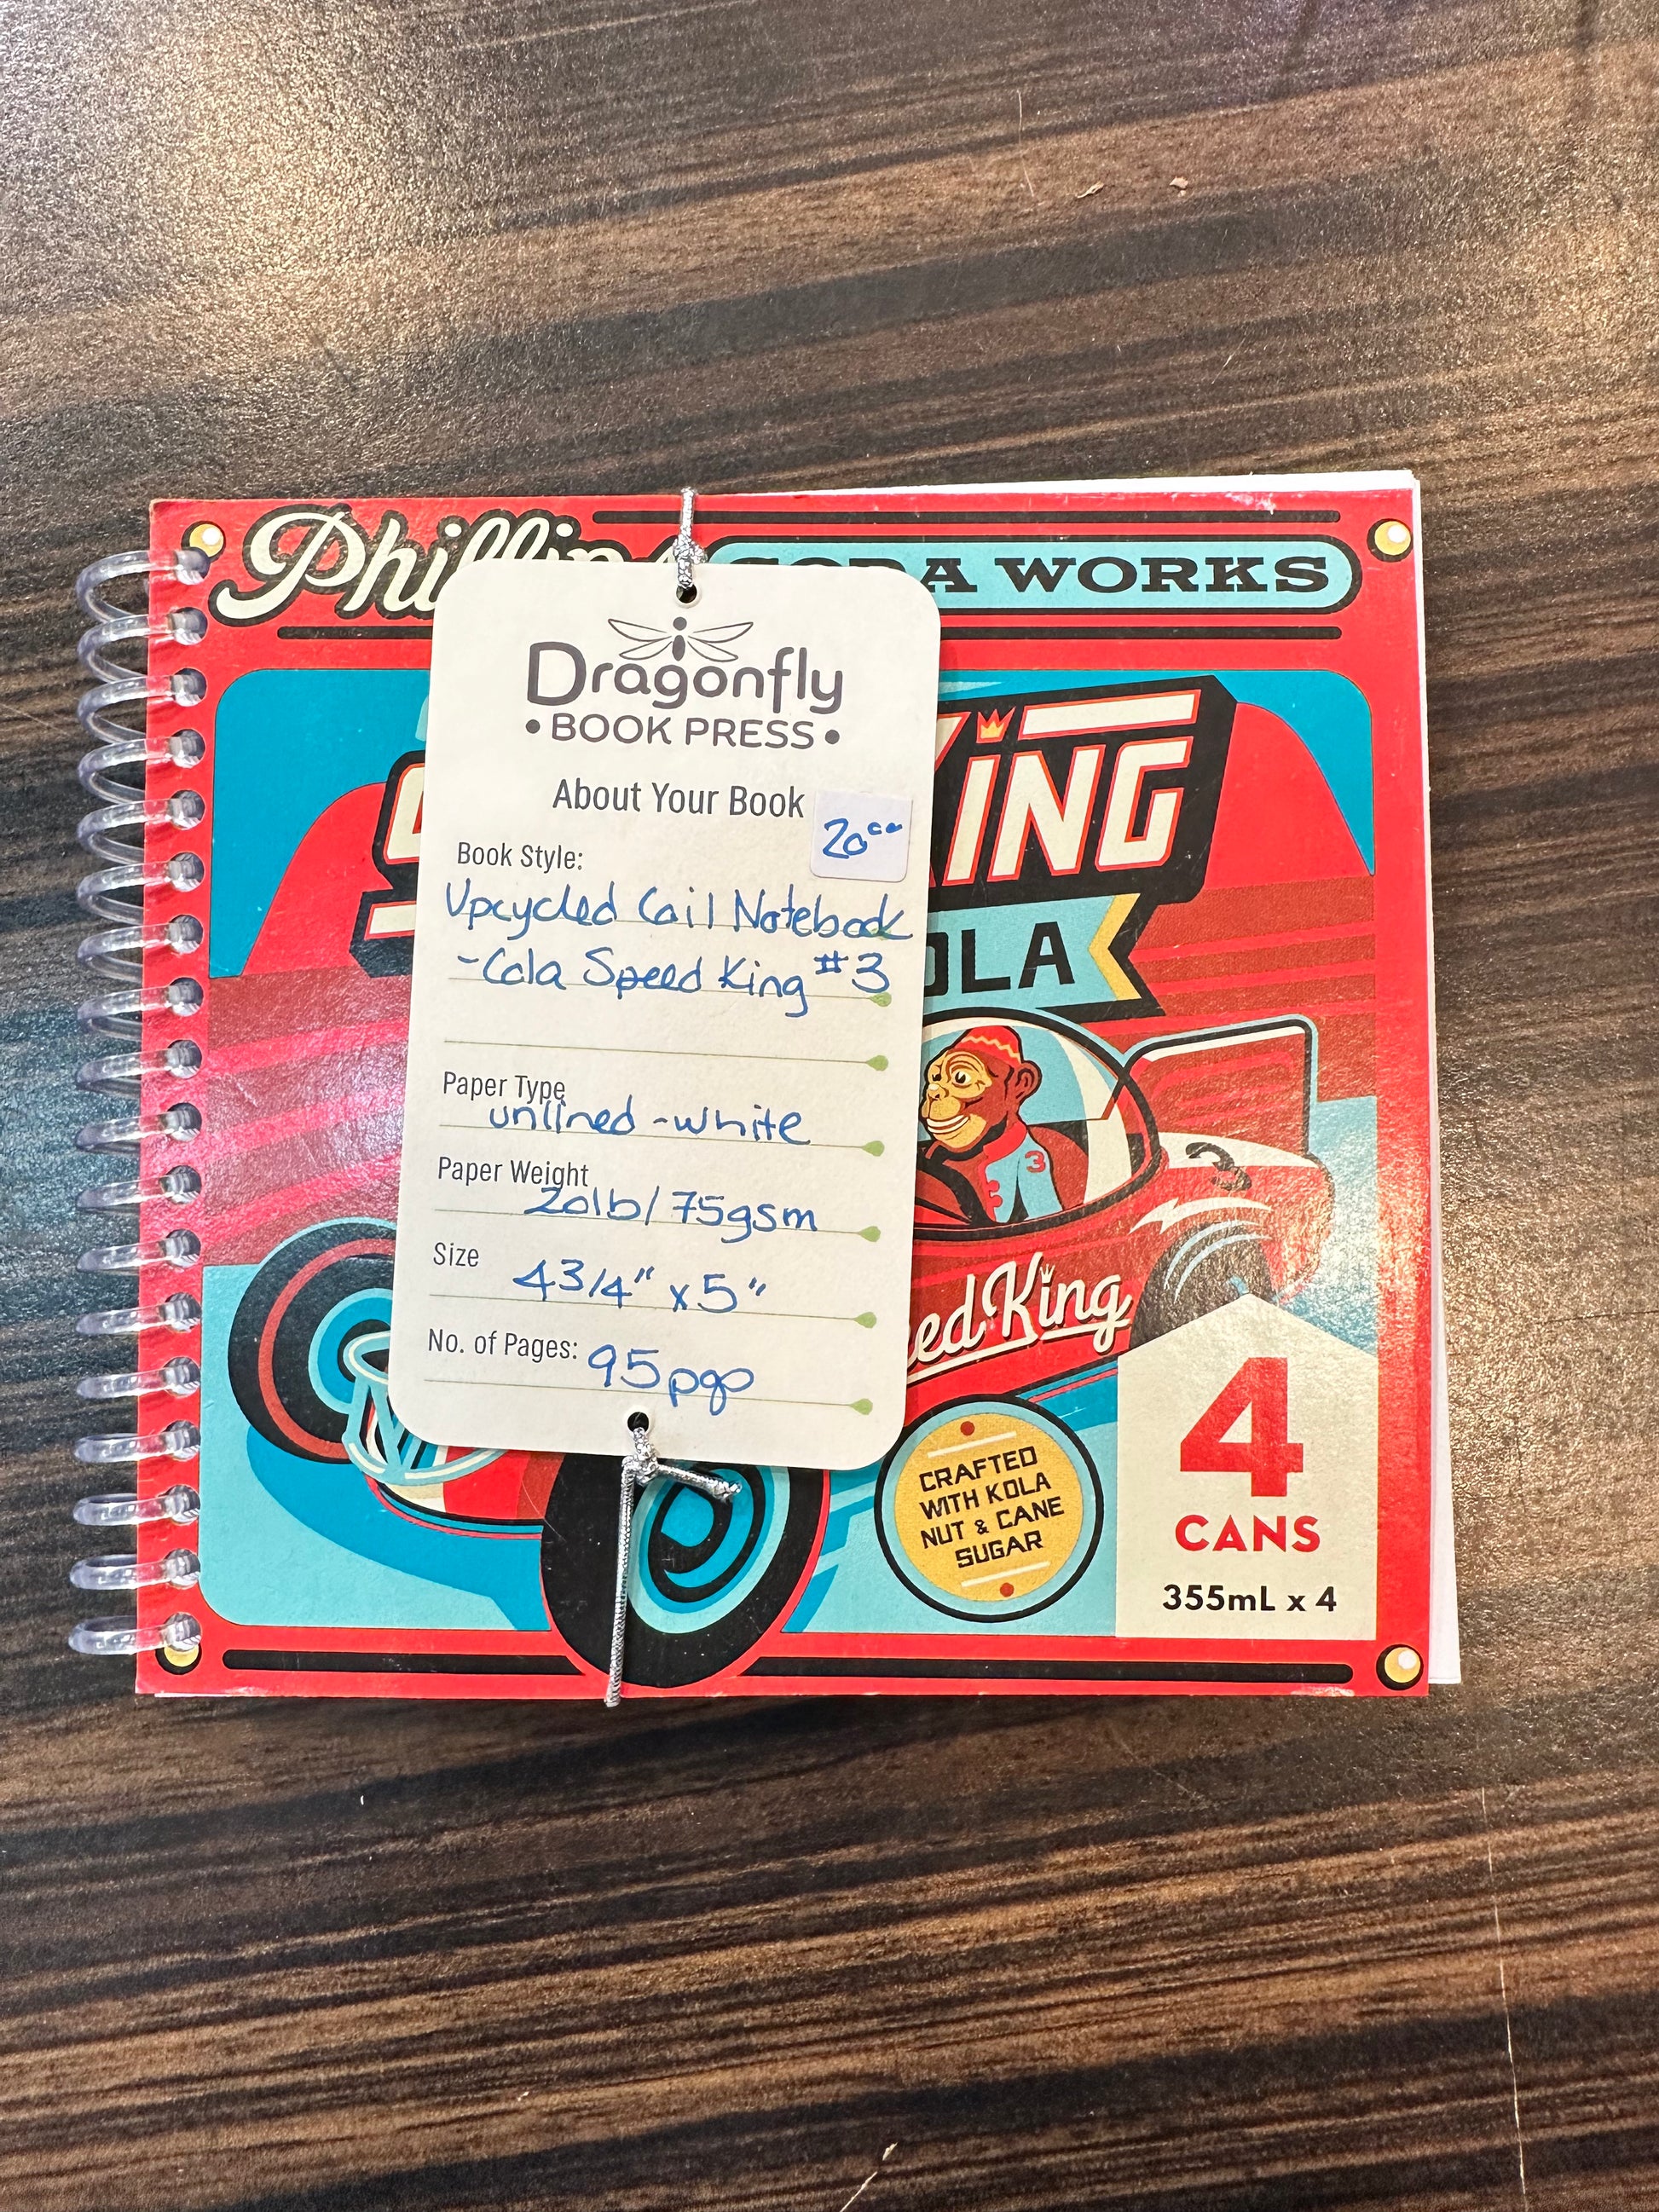 Phillips SODA WORKS
Dragonfly
• BOOK PRESS •
About Your Book
20⁰⁰
Book Style:
Upcycled Coil Notebook
- Cola Speed King #3
Paper Type
unlined - white
Paper Weight
20lb/75gsm
Size
4 3/4" x 5"
No. of Pages:
95 pgs
KING
OLA
3
3
eed King
CRAFTED
WITH KOLA
NUT & CANE
SUGAR
4
CANS
355mL x 4